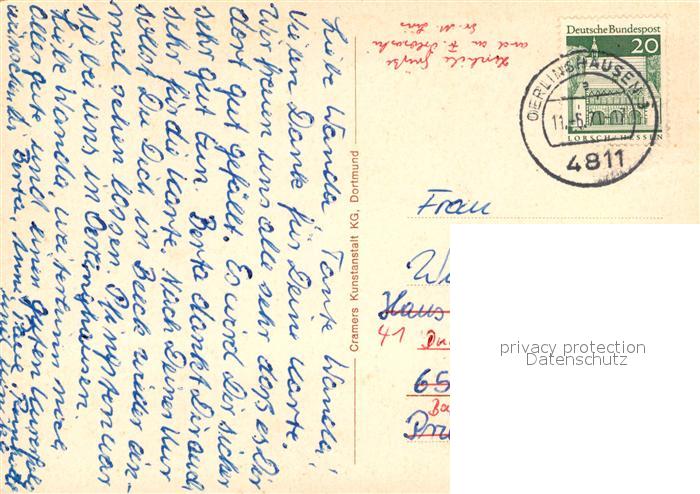 Liebe Wanda, Tante Wanda!
Vielen Dank für Deine Karte.
Wir freuen uns alle sehr daß es Dir
dort gut gefällt. Es wird Dir sicher
sehr gut tun. Berta dankt Dir auch
sehr für die Karte. Nach Deiner Kur
sollst Du Dich in Beeck wieder ein-
mal sehen lassen. Pfingsten war
sie bei uns in Oerlinghausen.
Liebe Wanda, weiterhin noch
alles gute und einen guten Kurerfolg
wünschen Dir Berta,
Herzliche Grüße
und an
Cramers Kunstanstalt KG, Dortmund
Deutsche Bundespost
20
LORSCH/HESSEN
OERLINGHAUSEN 1
11.-6.
4811
Frau
Haus
41
65
privacy protection
Datenschutz